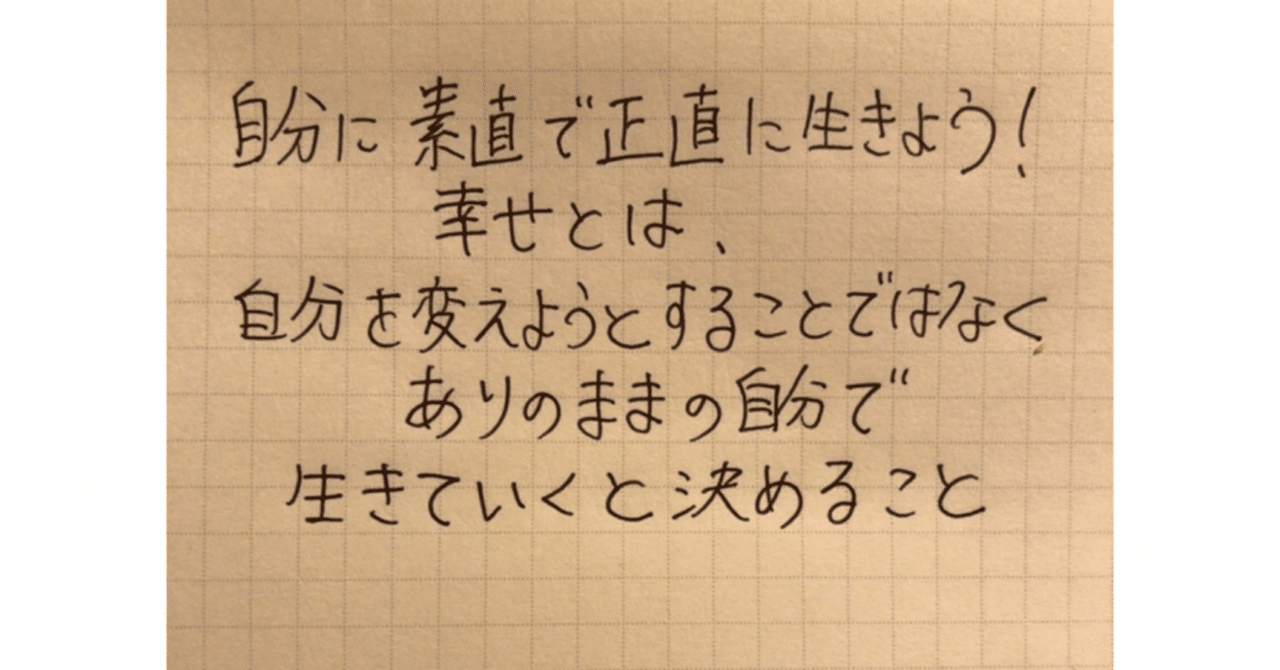 自分に素直で正直に生きよう!
幸せとは、
自分を変えようとすることではなく
ありのままの自分で
生きていくと決めること